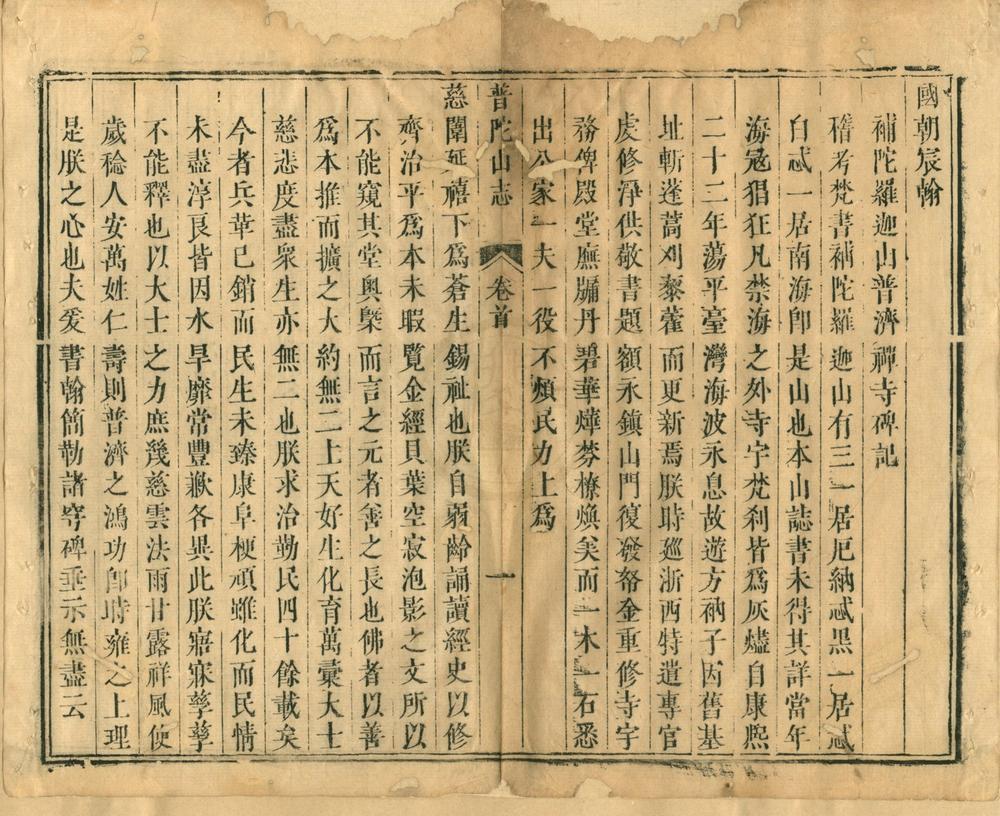 國朝宸翰
補陀羅迦山普濟禪寺碑記
稽考梵書補陀羅迦山有三一居厄納忒黑一居忒
白忒一居南海卽是山也本山誌書未得其詳當年
海寇猖狂凡禁海之外寺宇梵刹皆爲灰燼自康熙
二十二年蕩平臺灣海波永息故遊方衲子因舊基
址斬蓬蒿刈藜藿而更新焉朕時廵浙西特遣專官
虔修淨供敬書題額永鎮山門復發帑金重修寺宇
務俾殿堂廡牖丹碧華燁棼橑煥矣而一木一石悉
出公家一夫一役不煩民力上爲
普陀山志 卷首 一
慈闈延禧下爲蒼生錫祉也朕自弱齡誦讀經史以修
齊治平爲本未暇覽金經貝葉空寂泡影之文所以
不能窺其堂奧槩而言之元者善之長也佛者以善
爲本推而擴之大約無二上天好生化育萬彚大士
慈悲度盡衆生亦無二也朕求治勤民四十餘載矣
今者兵革已銷而民生未臻康阜梗頑雖化而民情
未盡淳良皆因水旱靡常豐歉各異此朕寤寐孳孳
不能釋也以大士之力庶幾慈雲法雨甘露祥風使
歲稔人安萬姓仁壽則普濟之鴻功卽時雍之上理
是朕之心也夫爰書翰簡勒諸穹碑垂示無盡云